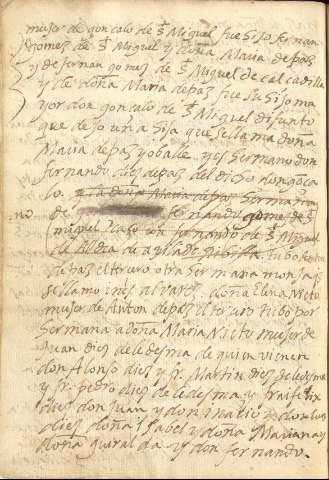 muger de gonçalo de s Miguel fue hijo fernan
gomez de s Miguel y doña Maria de paz
y de fernan gomez de s Miguel de calcadilla
y de doña Maria de paz fue su hijo ma
yor don gonçalo de s Miguel difunto
que dejo una hija que se llama doña
Maria de paz y oballe y es hermano don
fernando diez de paz del dicho dongonca
lo. y la doña Maria de paz hermana
no de fernandu gomez de s
miguel de s Miguel
de tubo
de paz el tuerto otra hermana monja q
se llamo ines alvarez. doña Elena Nieto
muger de Anton de paz el tuerto tubo por
hermana a doña Maria Nieto muger de
Juan diez de ledesma de quien vienen
don Alonso diez y fr. Martin diez de ledesma
y fr. pedro diez de ledesma y frai felix
diez don Juan y don y don luis
diez doña Isabel y doña Mariana y
doña y don fernando.